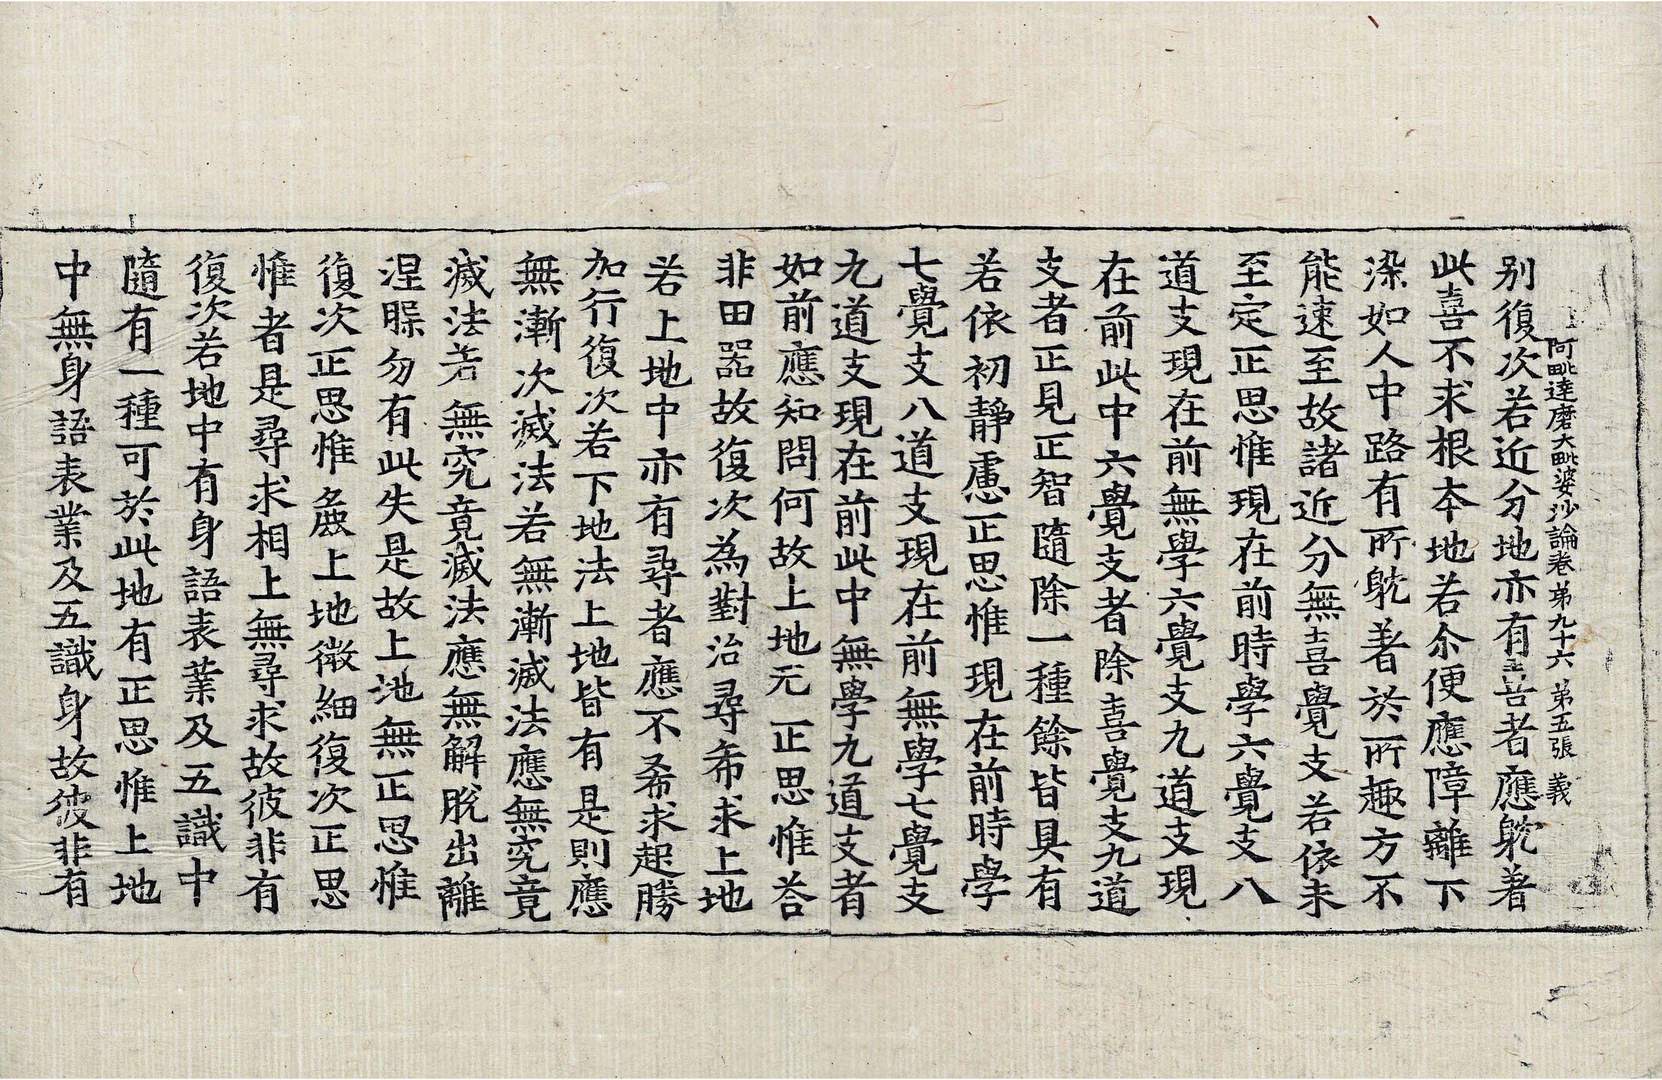 阿毗達磨大毗婆沙論卷第九十六 第五張 義
别復次若近分地亦有喜者應躭着
此喜不求根本地若尒便應障離下
染如人中路有所躭着於所趣方不
能速至故諸近分無喜覺支若依未
至定正思惟現在前時學六覺支八
道支現在前無學六覺支九道支現
在前此中六覺支者除喜覺支九道
支者正見正智隨除一種餘皆具有
若依初静慮正思惟現在前時學
七覺支八道支現在前無學七覺支
九道支現在前此中無學九道支者
如前應知問何故上地无正思惟荅
非田器故復次為對治尋希求上地
若上地中亦有尋者應不希求起勝
加行復次若下地法上地皆有是則應
無漸次滅法若無漸滅法應無究竟
滅法若無究竟滅法應無解脫出離
涅槃勿有此失是故上地無正思惟
復次正思惟麁上地微細復次正思
惟者是尋求相上無尋求故彼非有
復次若地中有身語表業及五識中
隨有一種可於此地有正思惟上地
中無身語表業及五識身故彼非有